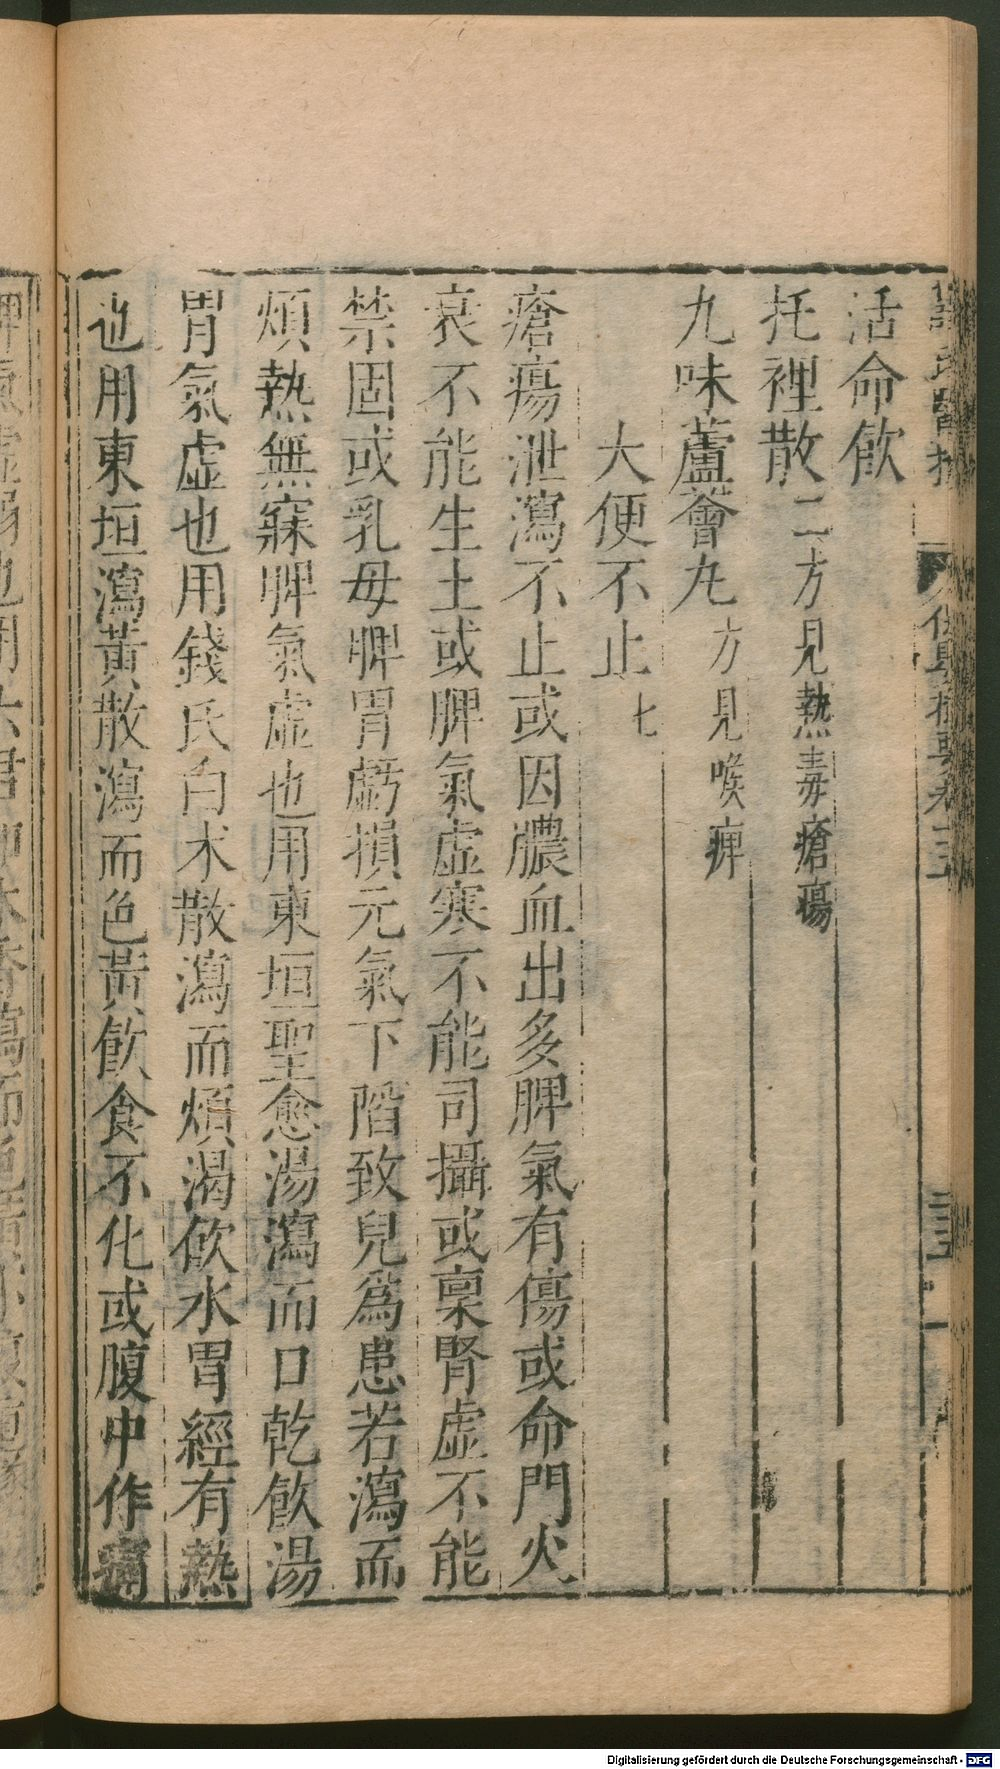 活命飲
托裡散二方見熱毒瘡瘍
九味蘆薈丸方見喉痺
大便不止七
瘡瘍泄瀉不止或因膿血出多脾氣有傷或命門火
衰不能生土或脾氣虛寒不能司攝或稟腎虛不能
禁固或乳母脾胃虧損元氣下陷致兒為患若瀉而
煩熱無寐脾氣虛也用東垣聖愈湯瀉而口乾飲湯
胃氣虛也用錢氏白朮散瀉而煩渴飲水胃經有熱
也用東垣瀉黃散瀉而色黃飲食不化或腹中作痛
Digitalisierung gefördert durch die Deutsche Forschungsgemeinschaft - DFG